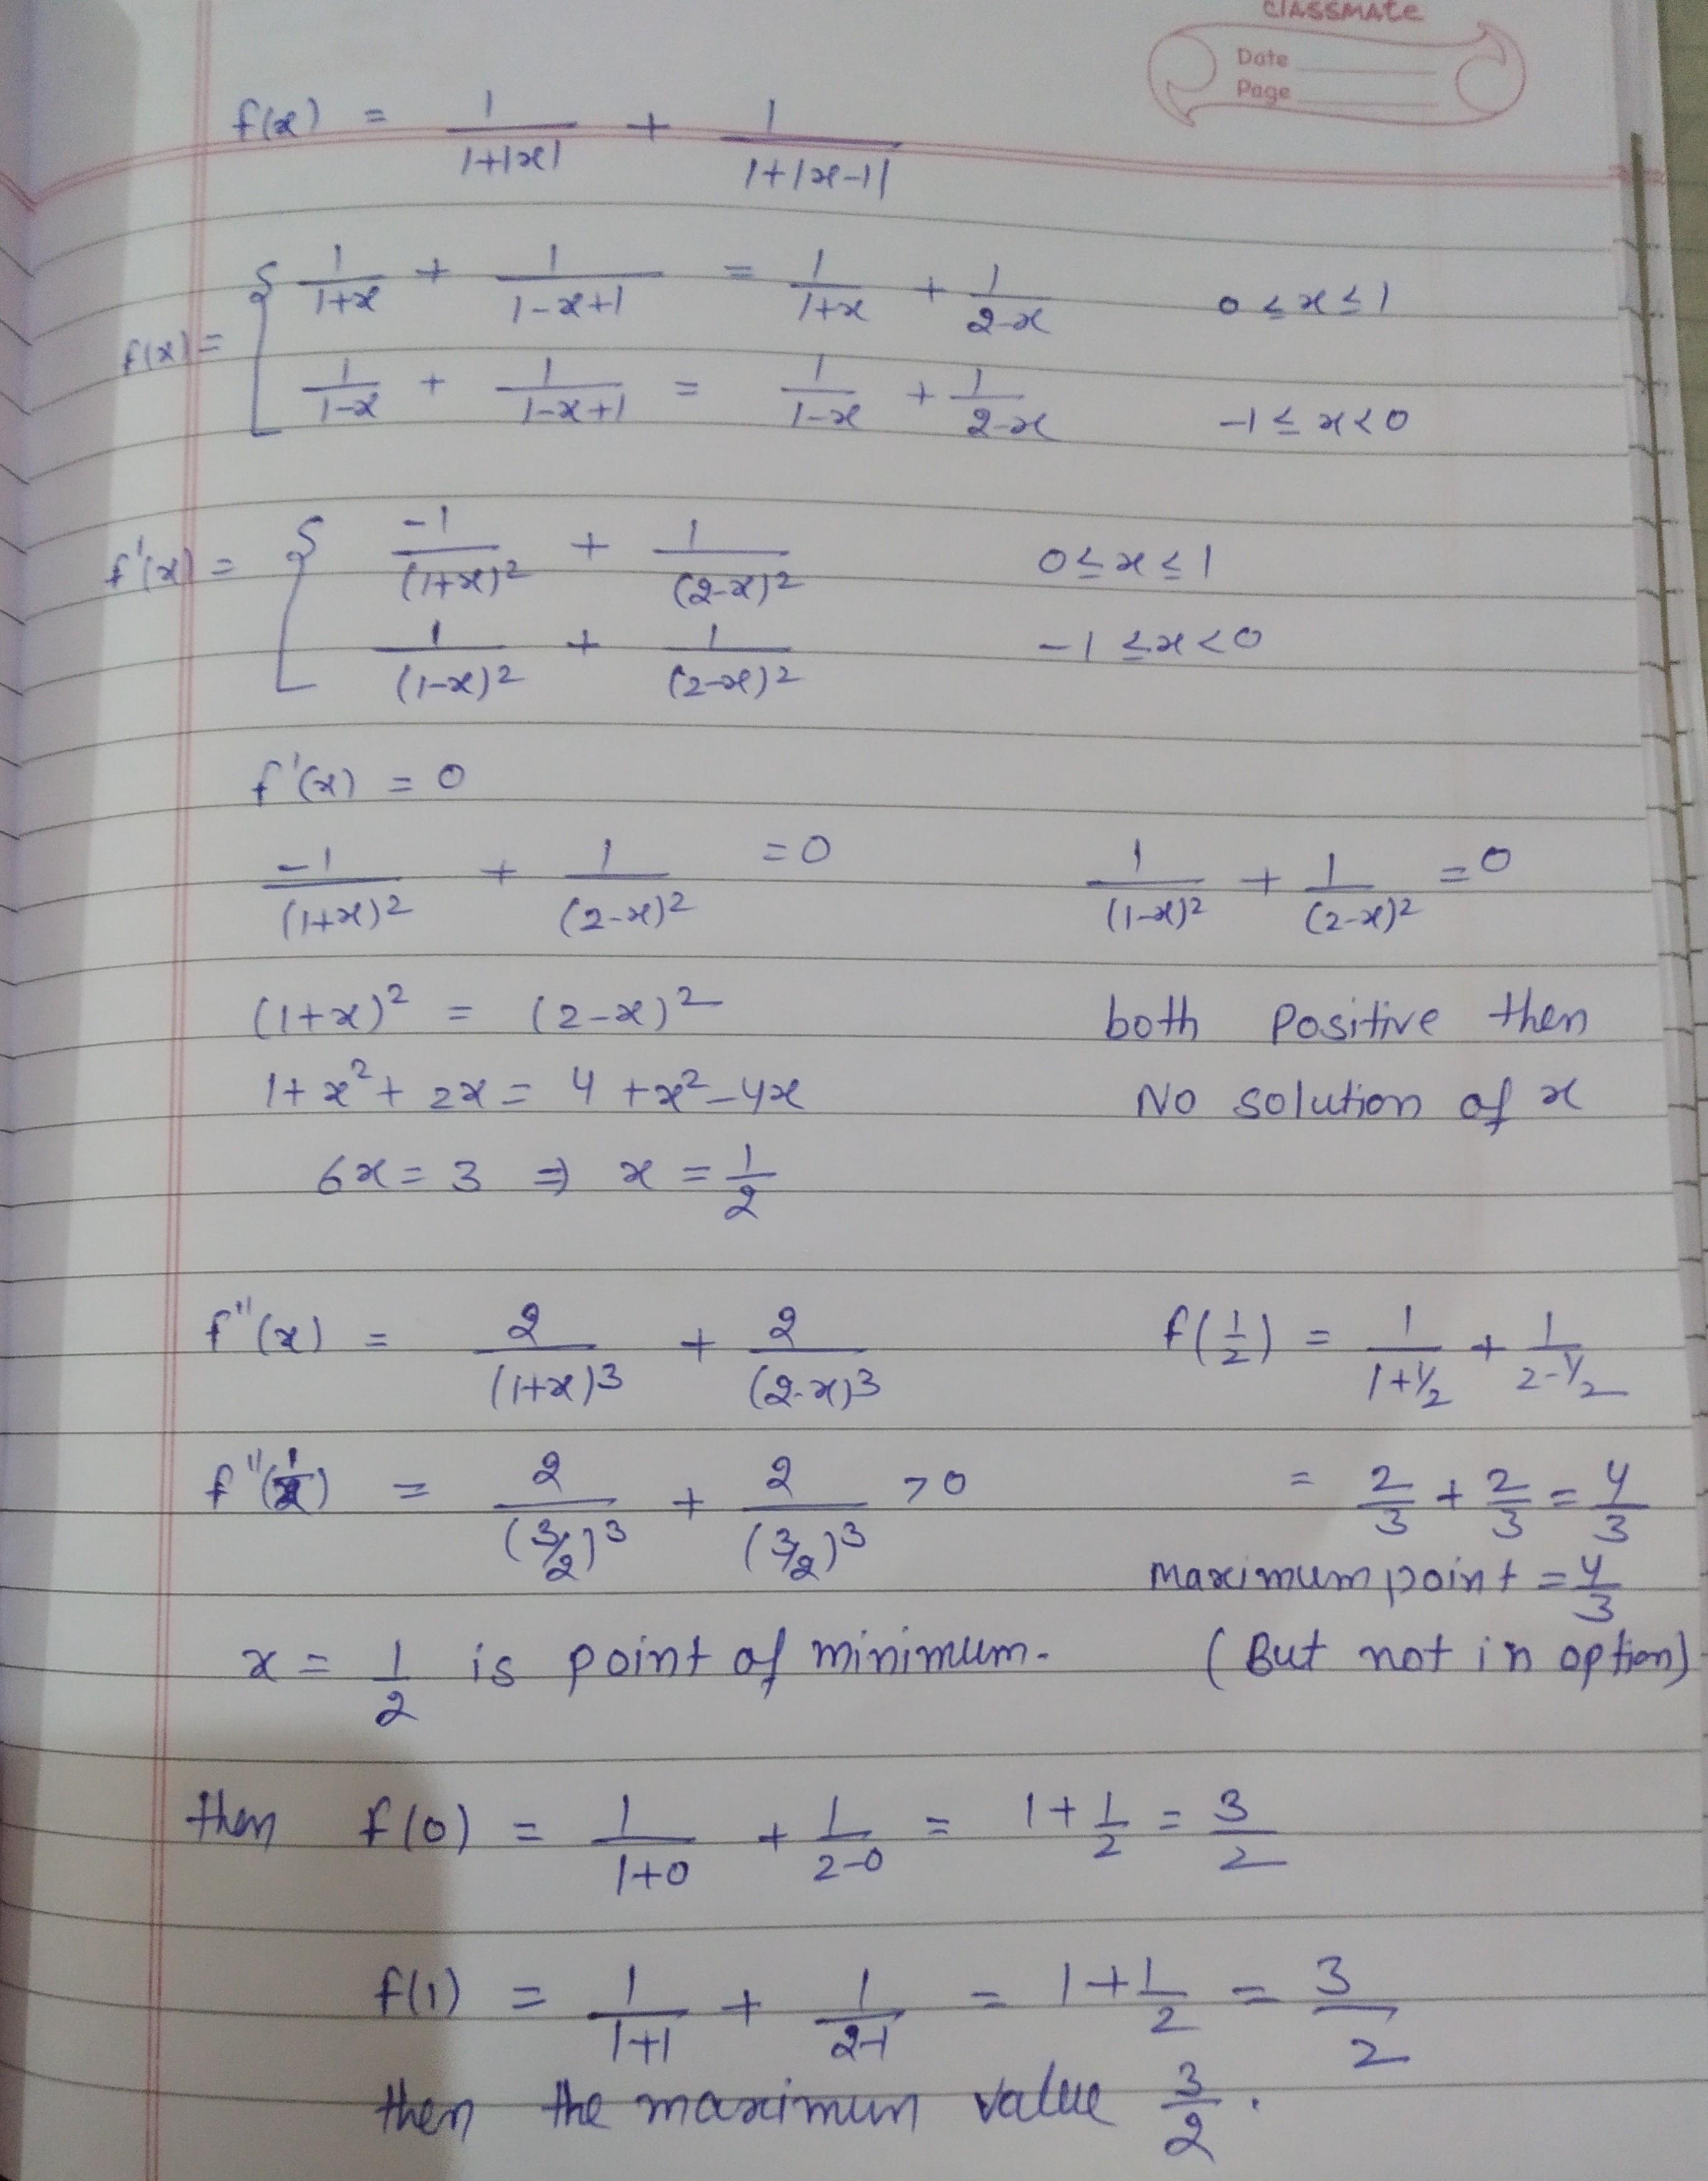 classmate
Date
Page
f(x) = 1/(1+|x|) + 1/(1+|x-1|)
f(x) = { 1/(1+x) + 1/(1-x+1) = 1/(1+x) + 1/(2-x) 0 ≤ x ≤ 1
1/(1-x) + 1/(1-x+1) = 1/(1-x) + 1/(2-x) -1 ≤ x < 0
f'(x) = { -1/(1+x)² + 1/(2-x)² 0 ≤ x ≤ 1
1/(1-x)² + 1/(2-x)² -1 ≤ x < 0
f'(x) = 0
-1/(1+x)² + 1/(2-x)² = 0 1/(1-x)² + 1/(2-x)² = 0
(1+x)² = (2-x)² both positive then
1+x²+2x = 4+x²-4x No solution of x
6x = 3 ⇒ x = 1/2
f''(x) = 2/(1+x)³ + 2/(2-x)³ f(1/2) = 1/(1+1/2) + 1/(2-1/2)
f''(1/2) = 2/(3/2)³ + 2/(3/2)³ > 0 = 2/3 + 2/3 = 4/3
maximum point = 4/3
x = 1/2 is point of minimum. (But not in option)
then f(0) = 1/(1+0) + 1/(2-0) = 1 + 1/2 = 3/2
f(1) = 1/(1+1) + 1/(2-1) = 1 + 1/2 = 3/2
then the maximum value 3/2.